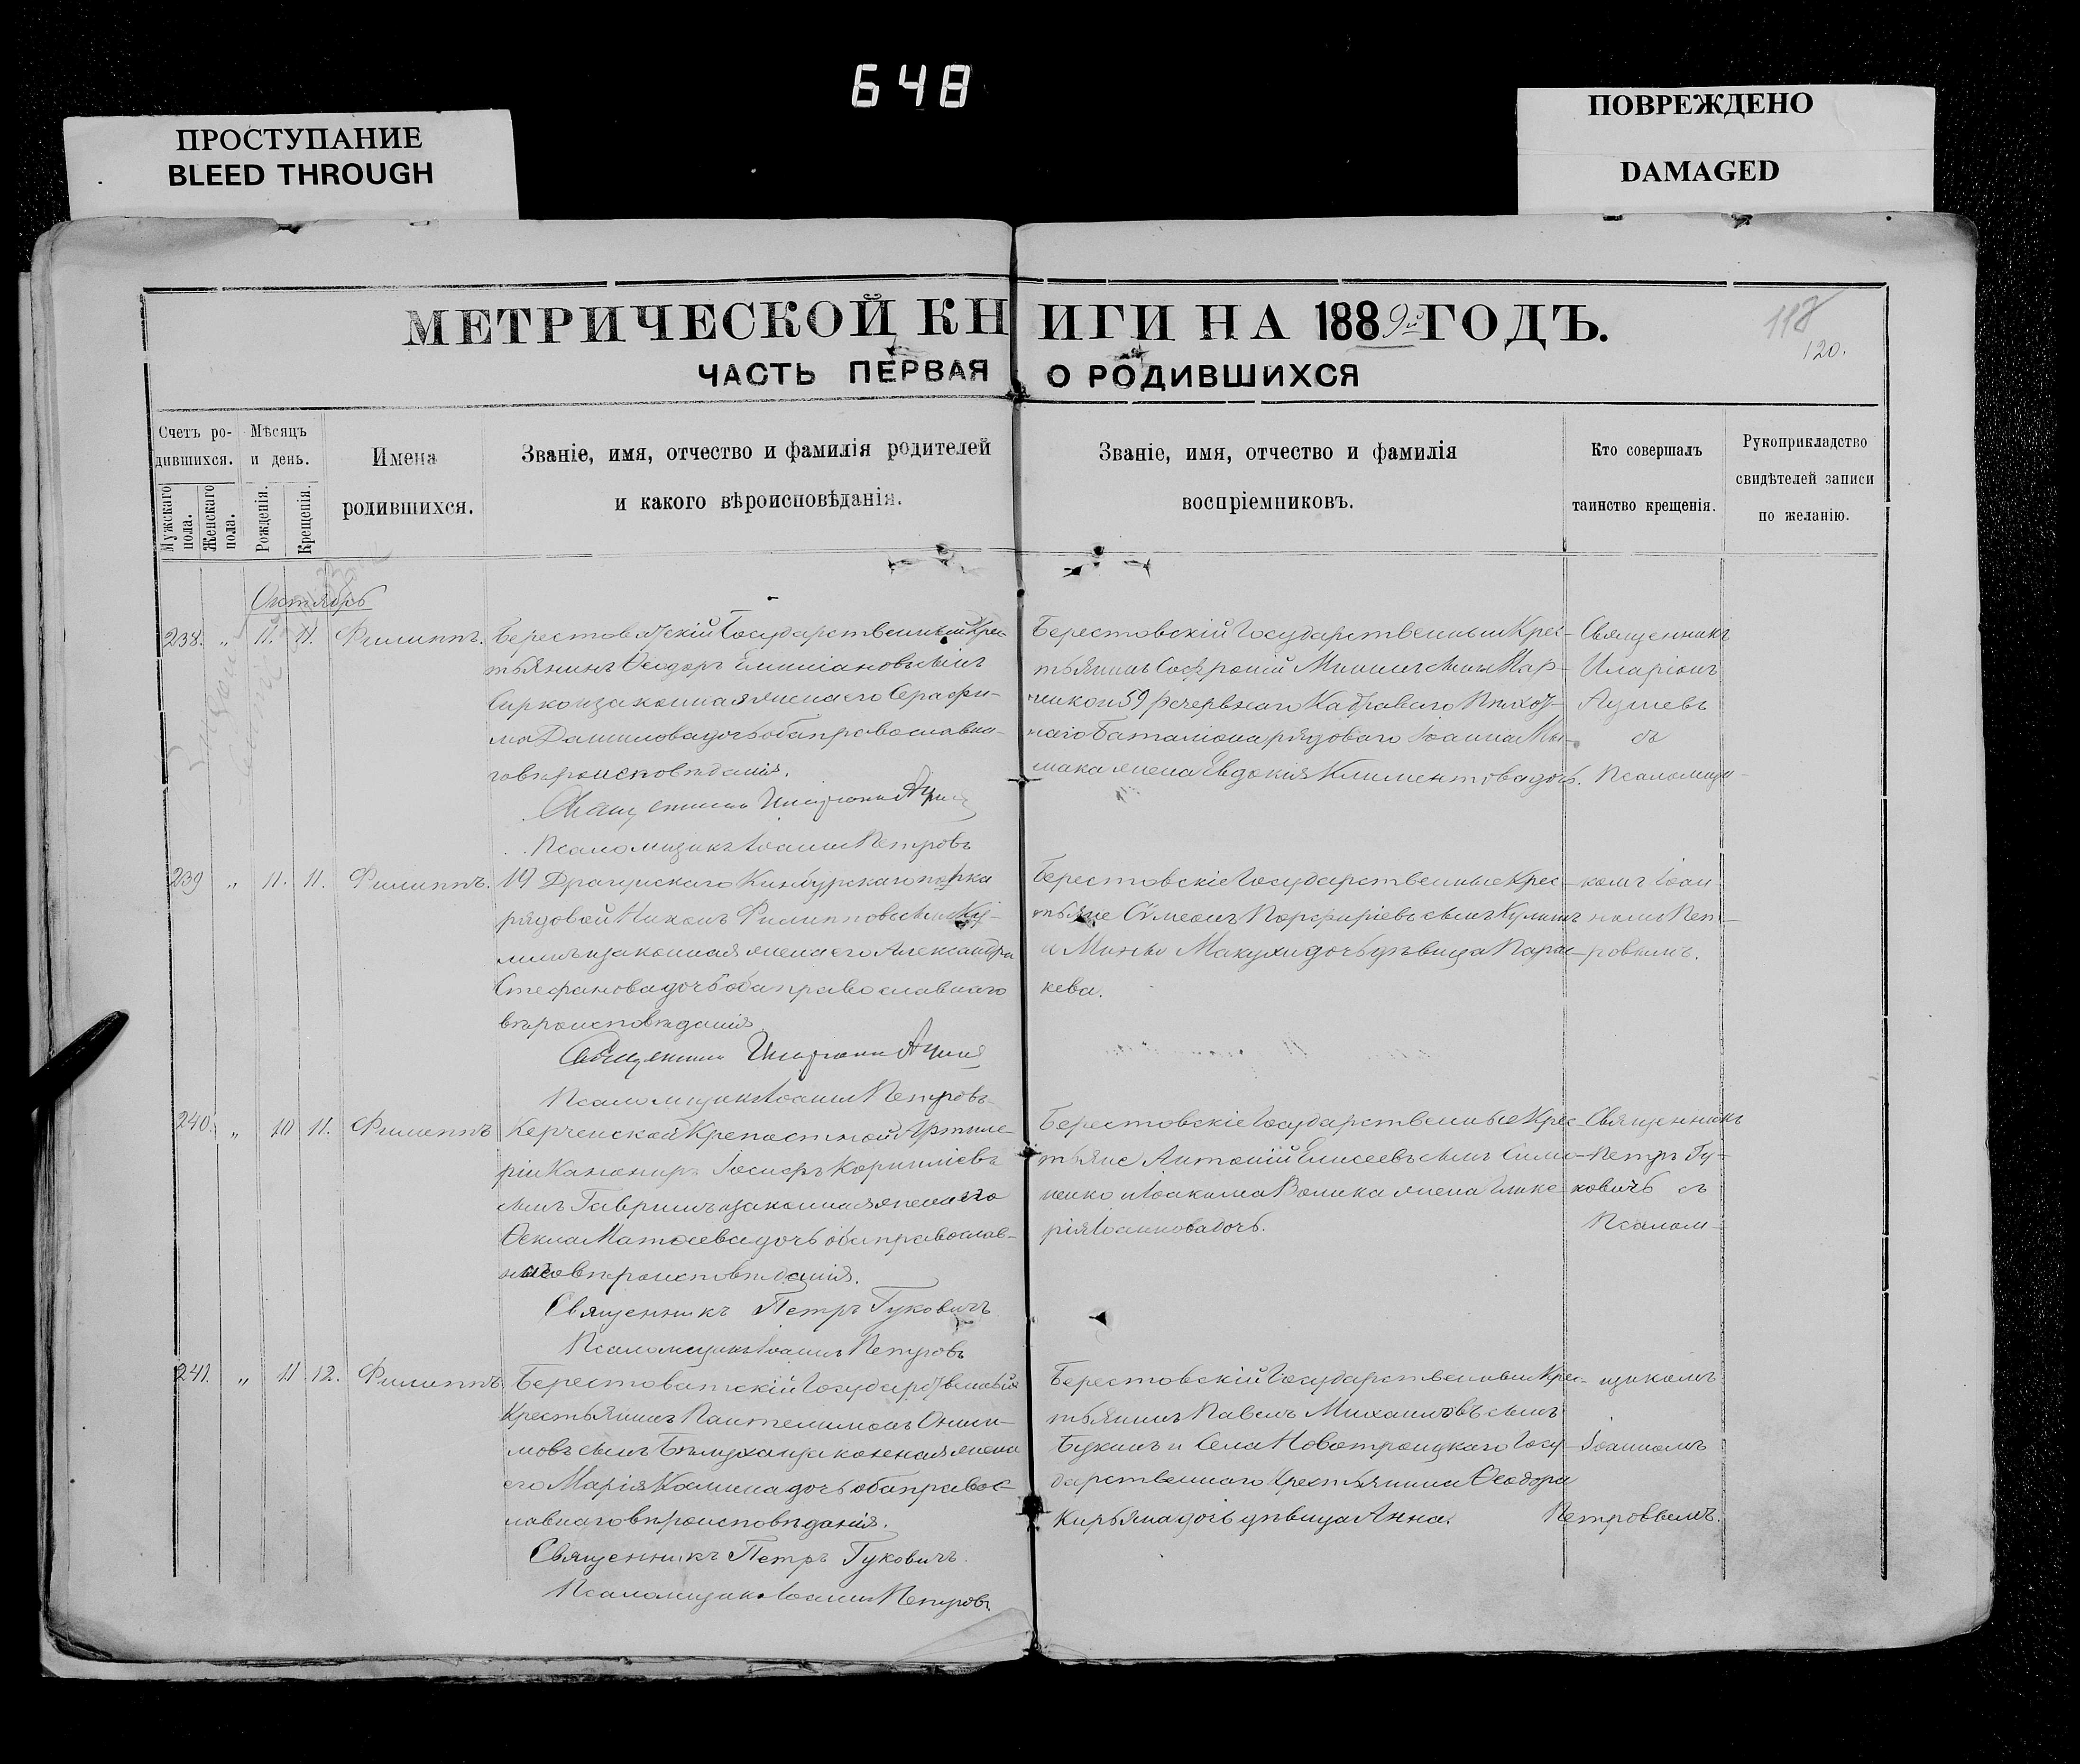 648
ПРОСТУПАНИЕ
BLEED THROUGH
ПОВРЕЖДЕНО
DAMAGED
МЕТРИЧЕСКОЙ КНИГИ НА 1889й ГОДЪ.
120.
ЧАСТЬ ПЕРВАЯ О РОДИВШИХСЯ
Счетъ ро-
дившихся.
Мужскаго пола.
Женскаго пола.
Мѣсяцъ
и день.
Рожденія.
Крещенія.
Имена
родившихся.
Званіе, имя, отчество и фамилія родителей
и какого вѣроисповѣданія.
Званіе, имя, отчество и фамилія
воспріемниковъ.
Кто совершалъ
таинство крещенія.
Рукоприкладство
свидѣтелей записи
по желанію.
Октябрь
238. " 11. 11. Филиппъ.
Берестоватскій Государственный Крес-
тьянинъ Ѳеодоръ сынъ
законная жена его Серафи-
ма Данилова дочь оба православна-
го вѣроисповѣданія.
Священникъ Иларіонъ
Псаломщикъ Іоаннъ Петровъ
Берестовскій Государственный Крес-
тьянинъ Софроній сынъ Мар-
59 резервнаго Кадроваго Пѣхот-
наго Баталіона рядоваго Іоанна
жена Евдокія Климентова дочь.
Священникъ
Иларіонъ
съ
Псаломщи-
239 " 11. 11. Филиппъ.
19 Драгунскаго Кинбурнскаго полка
рядовой Никонъ Филипповъ сынъ Ку-
и законная жена его Александра
Стефанова дочь оба православнаго
вѣроисповѣданія
Священникъ Иларіонъ
Псаломщикъ Іоаннъ Петровъ
Берестовскіе Государственные Крес-
тьяне Сѵмеонъ Порфиріевъ сынъ
и Мины Макухи дочь дѣвица Парас-
кева.
комъ Іоан
номъ Пет-
ровымъ.
240. " 10 11. Филиппъ
Керченской Крепостной Артиле-
ріи Канониръ Іосифъ Корниліевъ
сынъ Гавришъ и законная жена его
Ѳекла Матѳеева дочь оба православ-
наго вѣроисповѣданія.
Священникъ Петръ Гуковичъ
Псаломщикъ Іоаннъ Петровъ
Берестовскіе Государственные Крес-
тьяне Антоній Елисеевъ сынъ Сими-
ненко и Іоакима Волика жена Глике-
рія Іоаннова дочь.
Священникъ
Петръ Гу-
ковичъ съ
Псалом-
241. " 11 12. Филиппъ.
Берестоватскій Государственный
Крестьянинъ ПантелимонъОниси-
мовъ сынъ Бѣлуха и законная жена
его Марія дочь оба правос-
лавнаго вѣроисповѣданія.
Священникъ Петръ Гуковичъ.
Псаломщикъ Іоаннъ Петровъ.
Берестовскій Государственный Крес-
тьянинъ Павелъ Михаиловъ сынъ
Букинъ и Села Новотроицкаго Госу-
дарственнаго Крестьянина Ѳеодора
Кирьяна дочь дѣвица Анна.
щикомъ
Іоанномъ
Петровымъ.